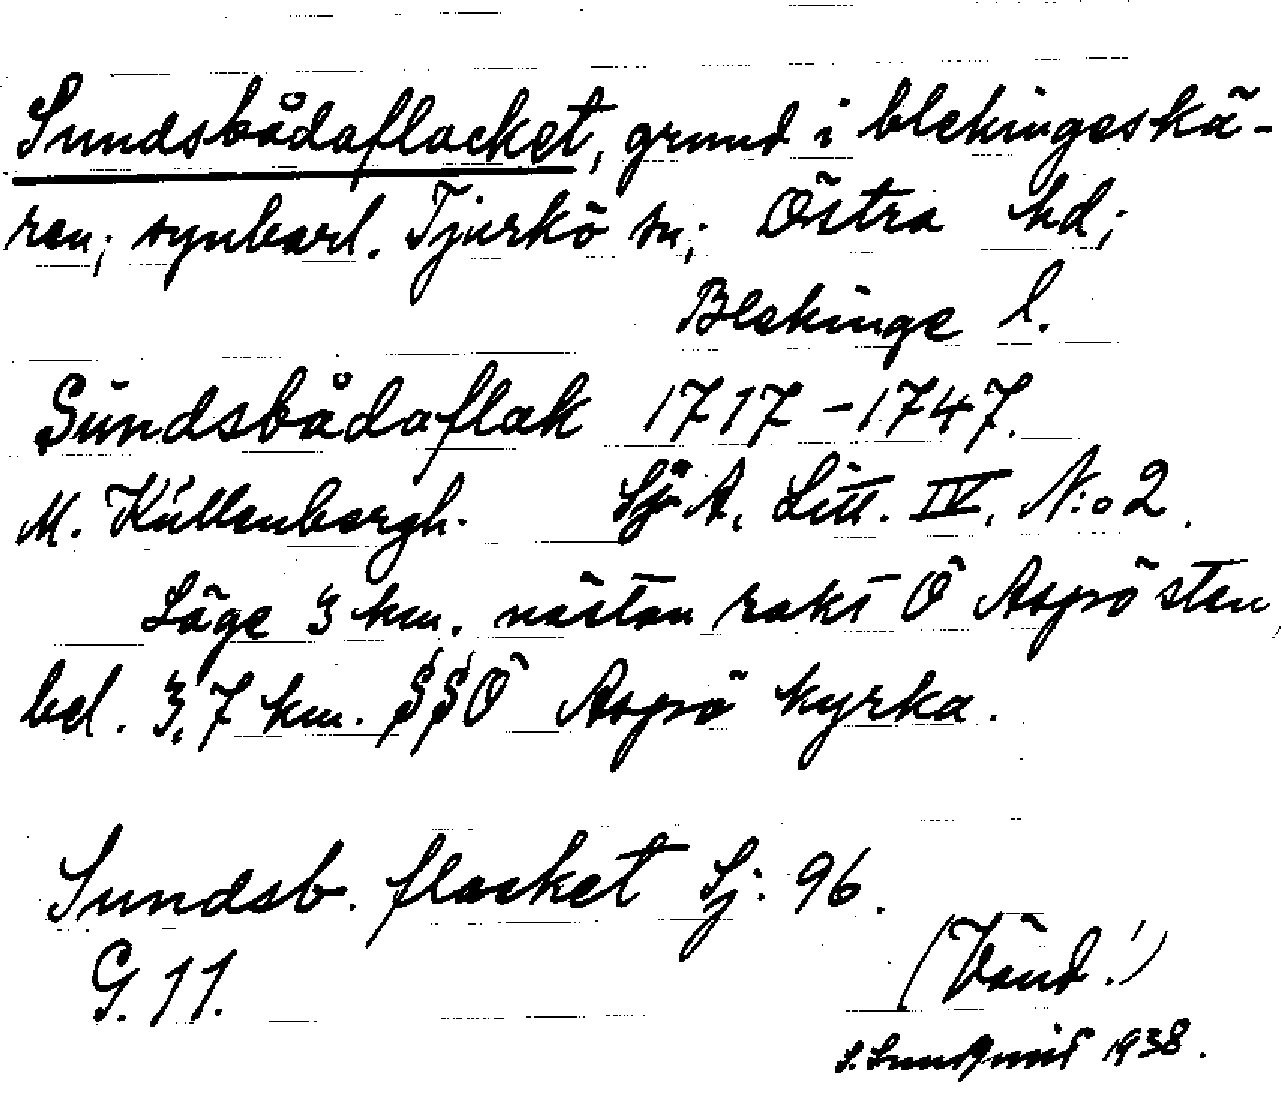 Sundsbådaflacket, grund i blekingeskä-
ren; synbarl. Tjurkö sn; Östra hd;
Blekinge l.
Sundsbådaflak 1717-1747.
M. Küllenbergh. Sj. A. Litt. IV. N:o 2.
Läge 3 km. nästan rakt Ö Aspö sten,
bel. 3,7 km. SSÖ Aspö kyrka.
Sundsb. flacket Sj: 96.
G. 11.
(Vänd!)
S. Sundqvist 1938.